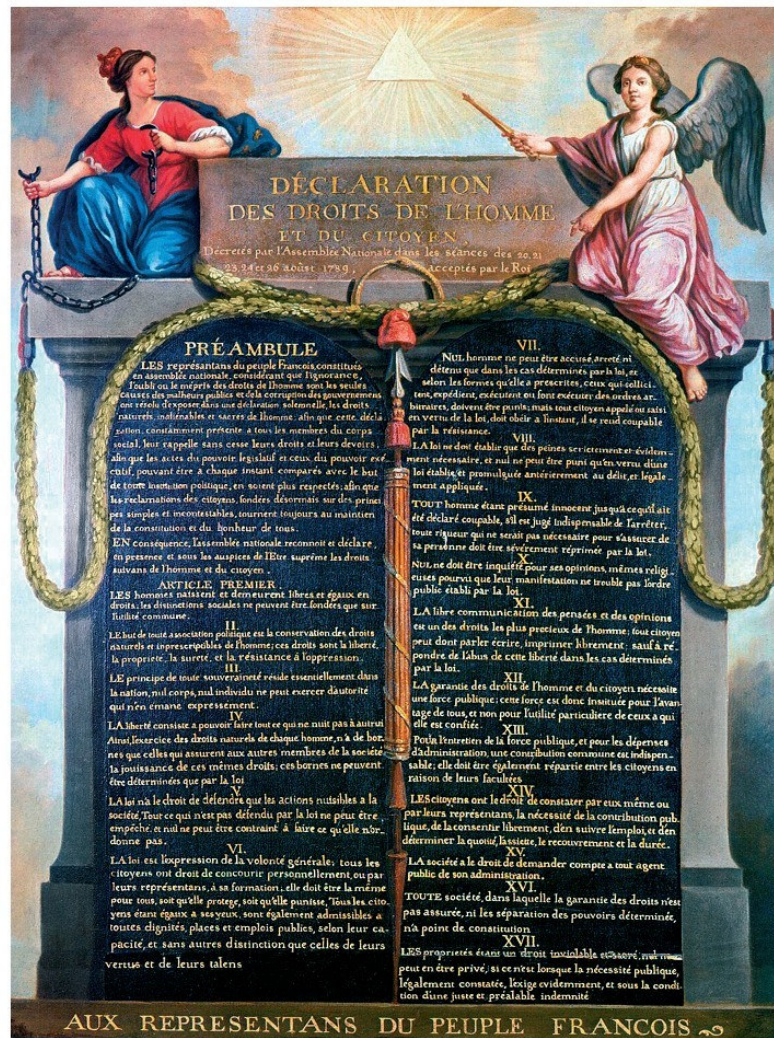 DÉCLARATION
DES DROITS DE L'HOMME
ET DU CITOYEN,
Décretés par l'Assemblée Nationale dans les séances des 20, 21
23, 24 et 26 août 1789, acceptés par le Roi
PRÉAMBULE
LES représantans du peuple Francois, constitués
en assemblée nationale, considérant que l'ignorance,
l'oubli ou le mépris des droits de l'homme sont les seules
causes des malheurs publics et de la corruption des gouvernemens
ont résolu d'exposer dans une déclaration solemnelle, les droits
naturels, inaliénables et sacrés de l'homme; afin que cette décla-
ration, constamment présente a tous les membres du corps
social, leur rappelle sans cesse leurs droits et leurs devoirs;
afin que les actes du pouvoir législatif et ceux du pouvoir exé-
cutif, pouvant être a chaque instant comparés avec le but
de toute institution politique, en soient plus respectés; afin que
les reclamations des citoyens, fondées désormais sur des princi-
pes simples et incontestables, tournent toujours au maintien
de la constitution et du bonheur de tous.
EN conséquence, l'assemblée nationale reconnoit et déclare,
en presence et sous les auspices de l'Etre suprême les droits
suivans de l'homme et du citoyen.
ARTICLE PREMIER.
LES hommes naissent et demeurent libres et égaux en
droits; les distinctions sociales ne peuvent être fondées que sur
l'utilité commune.
II.
LE but de toute association politique est la conservation des droits
naturels et inprescriptibles de l'homme; ces droits sont la liberté,
la propriété, la sureté, et la résistance à l'oppression.
III.
LE principe de toute souveraineté réside essentiellement dans
la nation, nul corps, nul individu ne peut exercer d'autorité
qui n'en émane expressément.
IV.
LA liberté consiste a pouvoir faire tout ce qui ne nuit pas à autrui
Ainsi, l'exercice des droits naturels de chaque homme, n'a de bor-
nes que celles qui assurent aux autres membres de la société
la jouissance de ces mêmes droits; ces bornes ne peuvent
être déterminées que par la loi
V.
LA loi n'a le droit de défendre que les actions nuisibles a la
société. Tout ce qui n'est pas défendu par la loi ne peut être
empêché, et nul ne peut être contraint à faire ce qu'elle n'or-
donne pas.
VI.
LA loi est l'expression de la volonté générale; tous les
citoyens ont droit de concourir personnellement, ou par
leurs représentans, à sa formation; elle doit être la même
pour tous, soit qu'elle protege, soit qu'elle punisse, Tous les cito-
yens étant égaux a ses yeux, sont également admissibles a
toutes dignités, places et emplois publics, selon leur ca-
pacité, et sans autres distinction que celles de leurs
vertus et de leurs talens
VII.
NUL homme ne peut être accusé, arreté, ni
détenu que dans les cas déterminés par la loi, et
selon les formes qu'elle a prescrites, ceux qui sollici-
tent, expédient, exécutent ou font exécuter des ordres ar-
bitraires, doivent être punis; mais tout citoyen appelé ou saisi
en vertu de la loi, doit obéir a l'instant, il se rend coupable
par la résistance.
VIII.
LA loi ne doit établir que des peines strictement et évidem-
ment nécessaire, et nul ne peut être puni qu'en vertu d'une
loi établie, et promulguée antérierement au délit, et légale-
ment appliquée.
IX.
TOUT homme étant présumé innocent jusqu'à ce qu'il ait
été déclaré coupable, s'il est jugé indispensable de l'arrêter,
toute rigueur qui ne serait pas nécessaire pour s'assurer de
sa personne doit être sévèrement réprimée par la loi.
X.
NUL ne doit être inquiété pour ses opinions, mêmes religi-
euses pourvu que leur manifestation ne trouble pas l'ordre
public établi par la loi.
XI.
LA libre communication des pensées et des opinions
est un des droits les plus precieux de l'homme; tout citoyen
peut dont parler écrire, imprimer librement; sauf à ré-
pondre de l'abus de cette liberté dans les cas déterminés
par la loi.
XII.
LA garantie des droits de l'homme et du citoyen nécessite
une force publique; cette force est donc instituée pour l'avan-
tage de tous, et non pour l'utilité particuliere de ceux a qui
elle est confiée
XIII.
POUR l'entretien de la force publique, et pour les dépenses
d'administration, une contribution commune est indispen-
sable; elle doit être également répartie entre les citoyens en
raison de leurs facultées
XIV.
LES citoyens ont le droit de constater par eux même ou
par leurs représentans, la nécessité de la contribution pub-
lique, de la consentir librement, d'en suivre l'emploi, et d'en
déterminer la quotité, l'assiette, le recouvrement et la durée.
XV.
LA société a le droit de demander compte a tout agent
public de son administration.
XVI.
TOUTE société, dans laquelle la garantie des droits n'est
pas assurée, ni les séparation des pouvoirs déterminée,
n'a point de constitution
XVII.
LES proprietés étant un droit inviolable et sacré, nul ne
peut en être privé, si ce n'est lorsque la nécessité publique,
légalement constatée, l'exige evidemment, et sous la condi-
tion d'une juste et préalable indemnité
AUX REPRESENTANS DU PEUPLE FRANCOIS